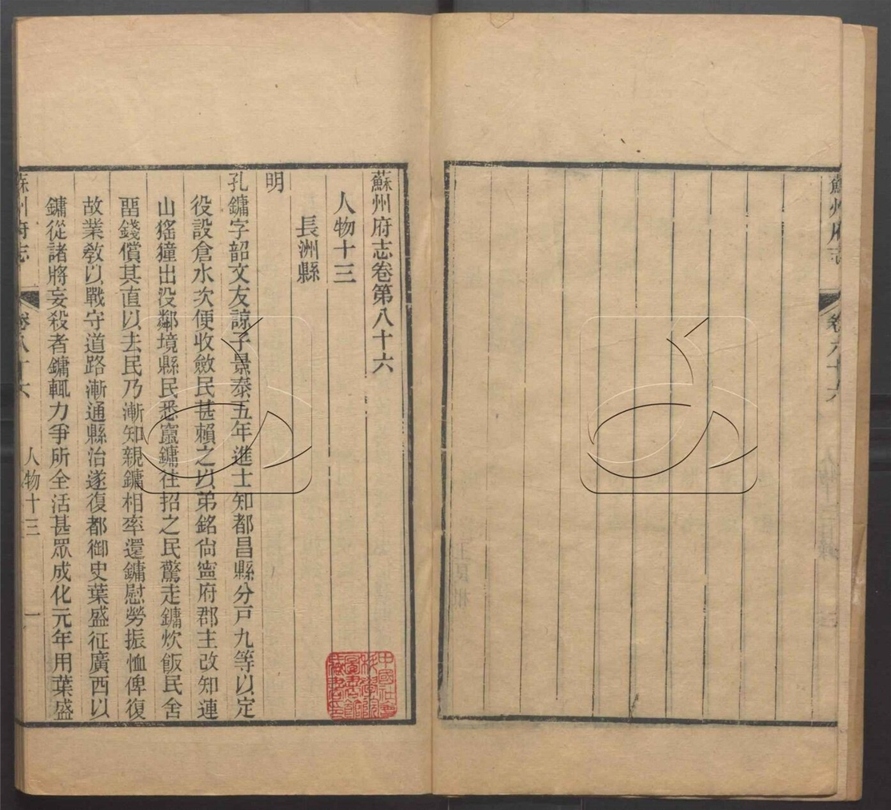 蘇州府志
蘇州府志卷第八十六
人物十三
長洲縣
明
孔鏞字韶文友諒子景泰五年進士知都昌縣分戸九等以定
役設倉水次便收斂民甚賴之以弟銘尙寧府郡主改知連
山猺獞出没鄰境縣民悉竄鏞往招之民驚走鏞炊飯民舍
畱錢償其直以去民乃漸知親鏞相率還鏞慰勞振恤俾復
故業敎以戰守道路漸通縣治遂復都御史葉盛征廣西以
鏞從諸將妄殺者鏞輒力爭所全活甚眾成化元年用葉盛
蘇州府志
卷八十六
人物十三
一